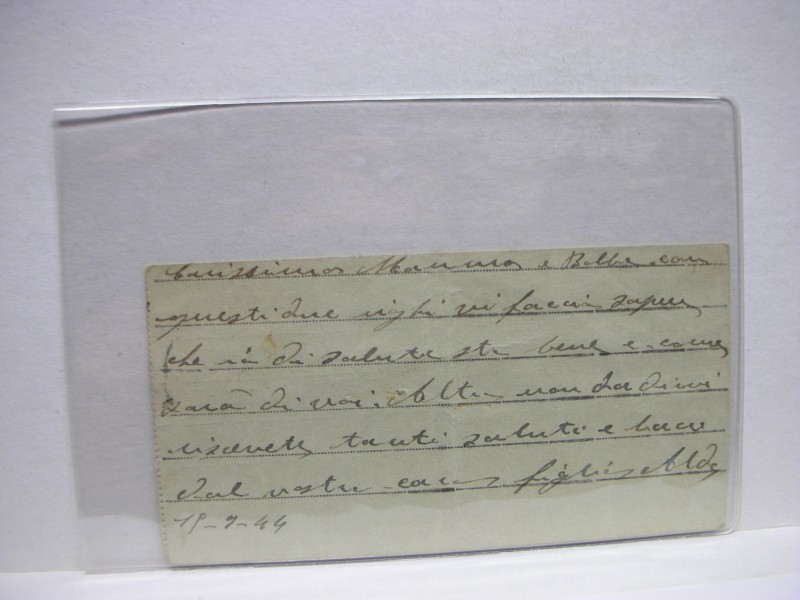 Carissimos Mamma e Bobbo con
questi due righi vi faccio sapere
che io di salute sto bene e come
sarà di voi. Altro non da dirvi
ricevete tanti saluti e baci
dal vostro caro figlio Aldo
19-9-44